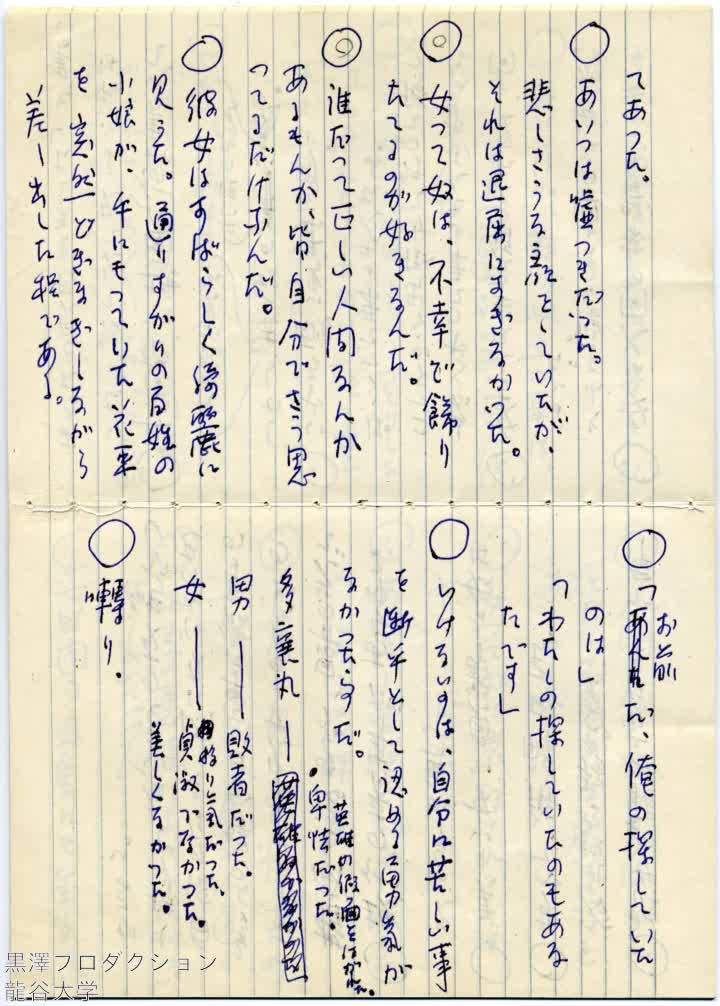 てあった。
あいつは嘘つきだった。
悲しさうな顔をしていたが、
それは退屈にすぎなかった。
女って奴は、不幸で飾り
たてるのが好きなんだ。
誰だって正しい人間なんか
あるもんか、皆自分でさう思
ってるだけなんだ。
彼女はすばらしく綺麗に
見えた。通りすがりの百姓の
小娘が、手にもっていた花束
を突然どぎまぎしながら
差し出した程である。
お前
「あんただ、俺の探していた
のは」
「わたしの探していたのもある
たです」
いけないのは、自分に苦しい事
を断乎として認める勇気が
なかった事だ。
多襄丸―
英雄の仮面をはがれた。
卑怯だった。
男―敗者だった。
女―
移り気だった、
貞淑でなかった。
美しくなかった。
囀り。
黒澤プロダクション
龍谷大学